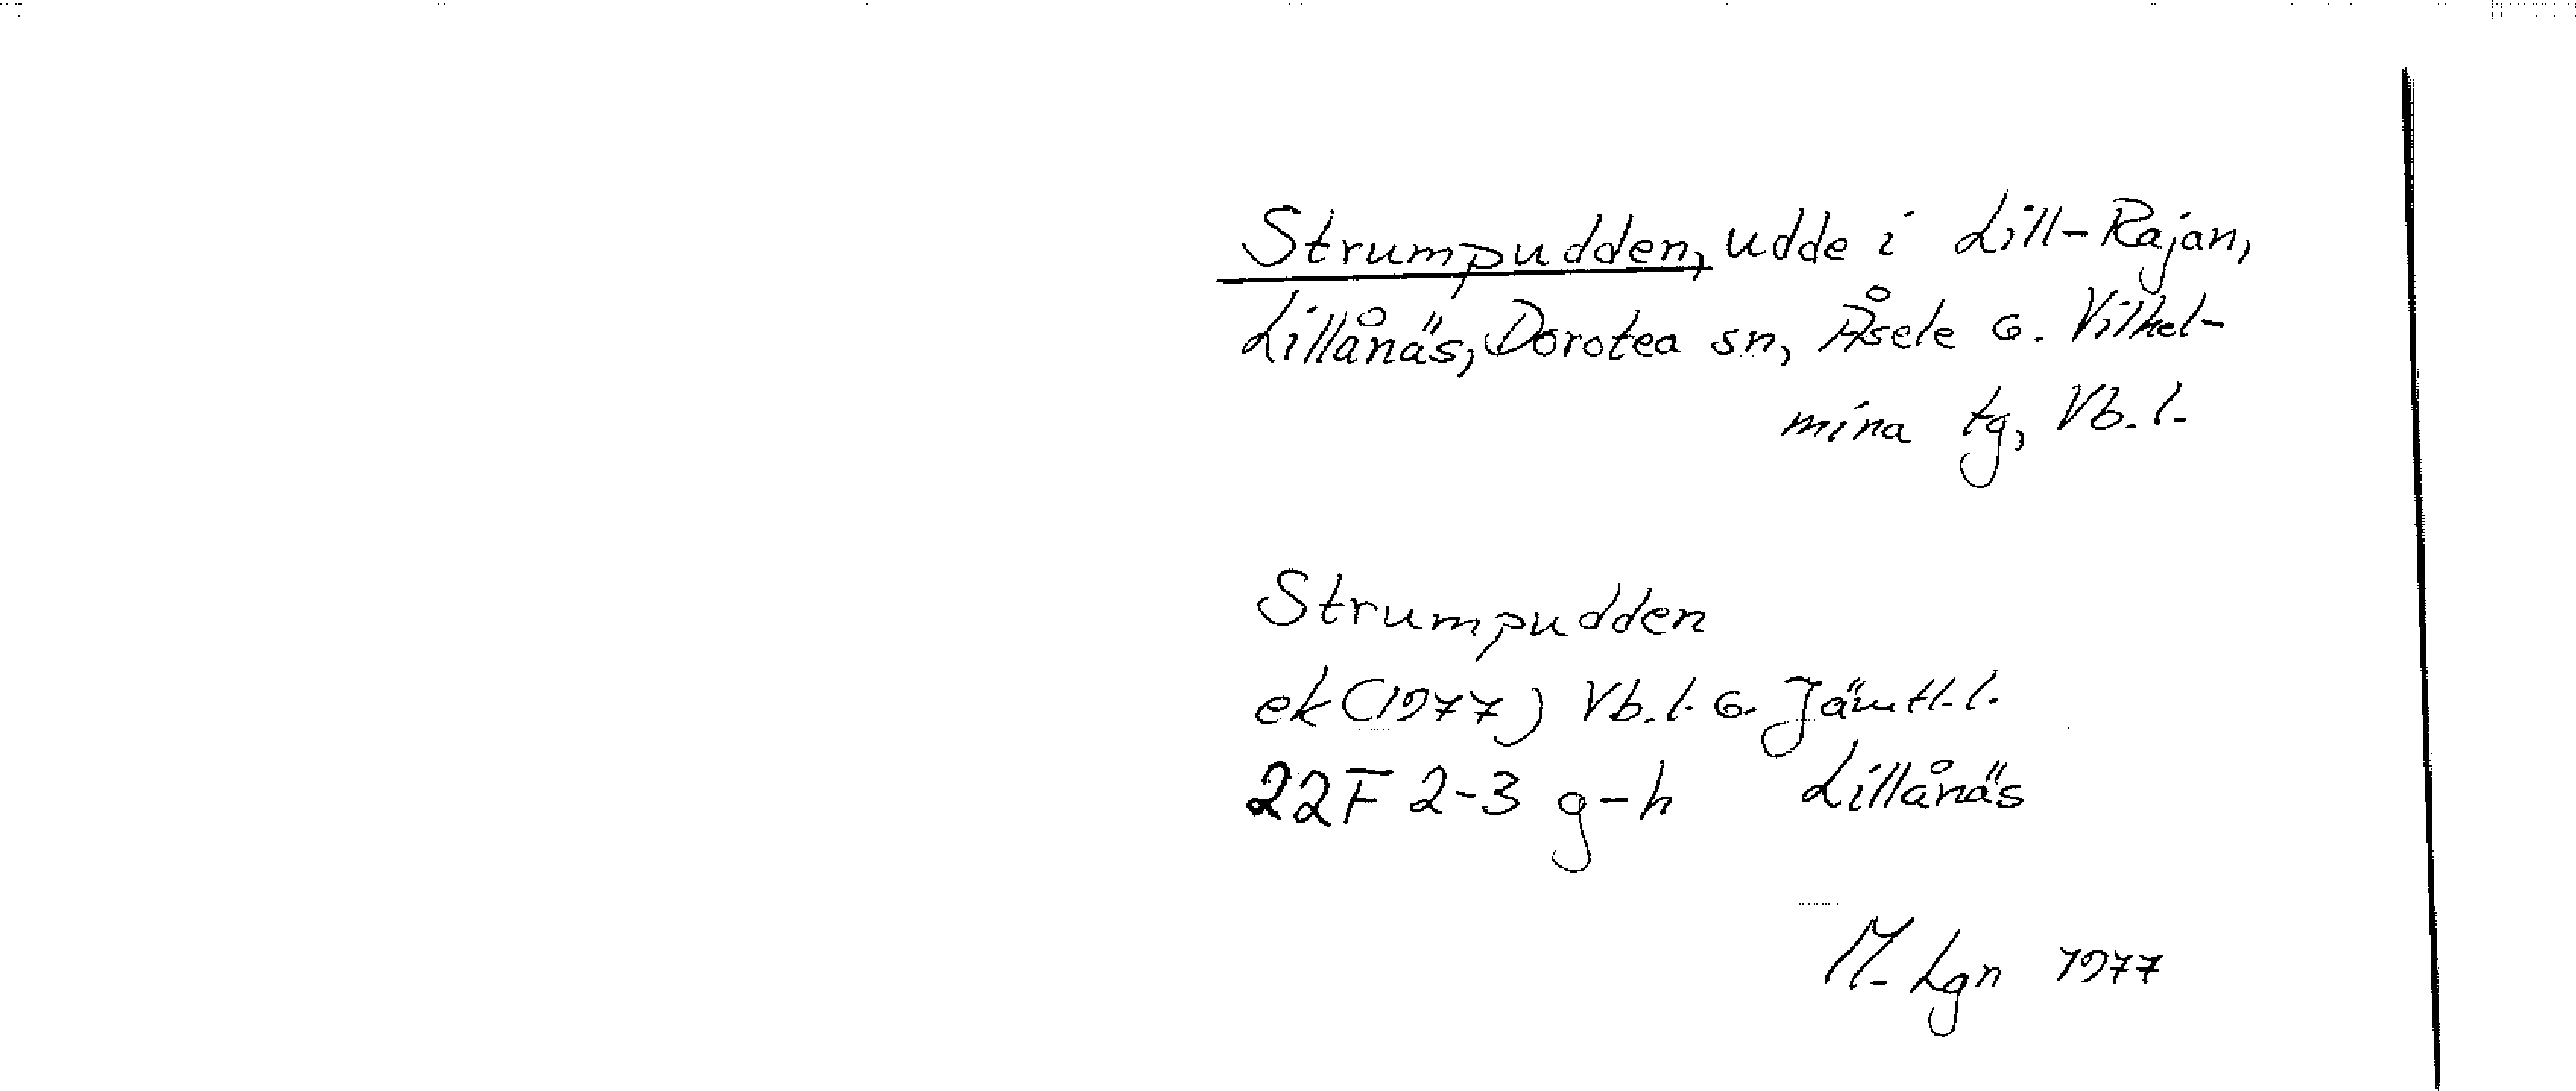 Strumpudden, udde i Lill-Rajan,
Lillånäs, Dorotea sn, Åsele o. Vilhel-
mina tg, Vb. l.
Strumpudden
ek (1977) Vb. l. o. Jämtl. l.
22F 2-3 g-h Lillånäs
M. Lgn 1977